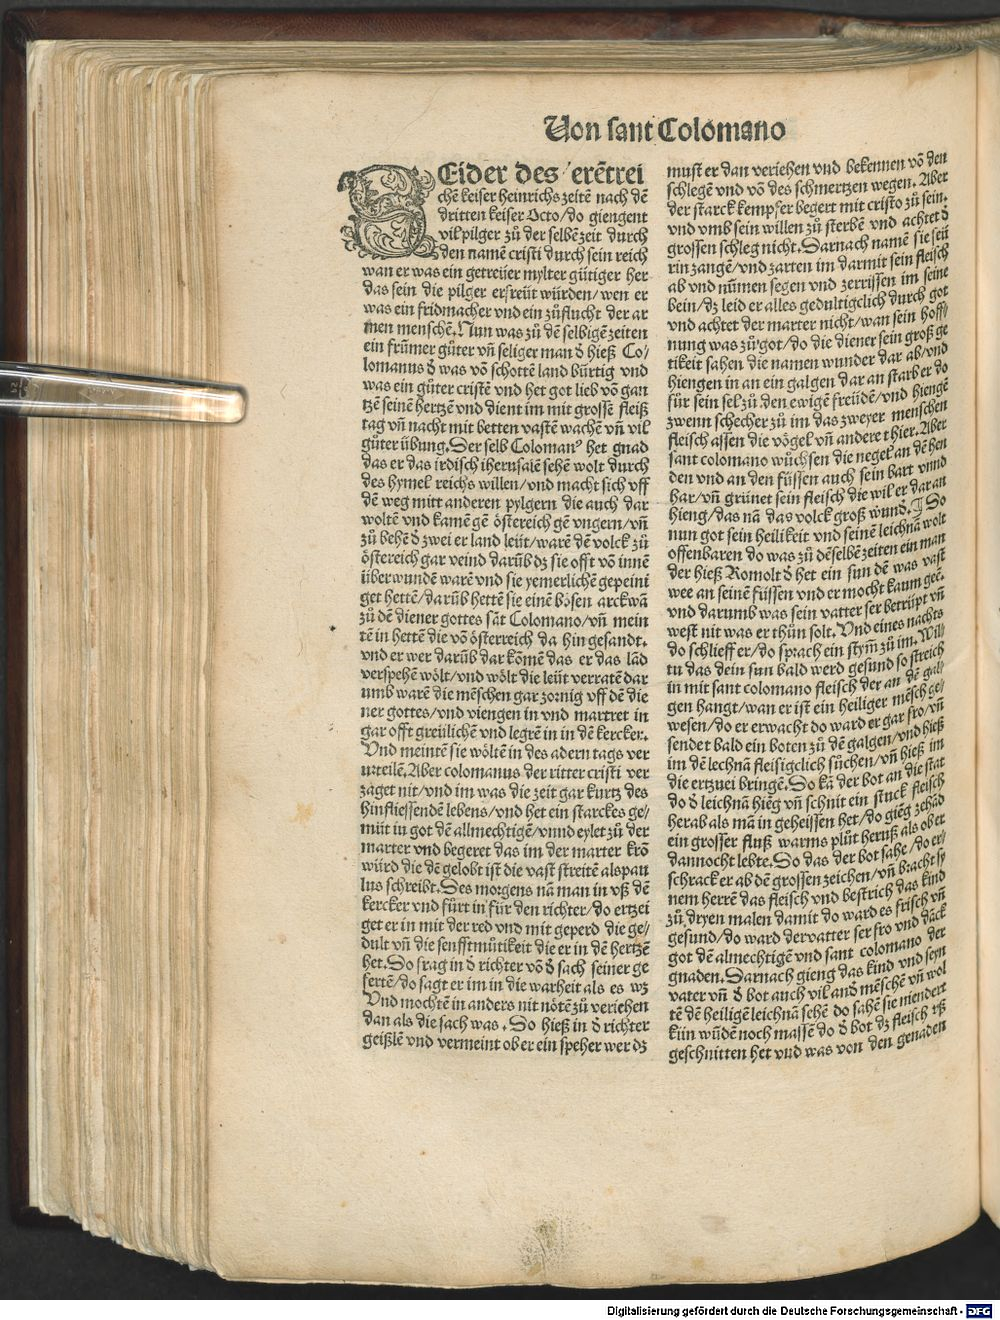 Von sant Colomano
BEider des erẽtrei
chẽ keiser heinrichs zeitẽ nach dẽ
dritten keiser Octo/do giengent
vil pilger zů der selbẽ zeit durch
den namẽ cristi durch sein reich
wan er was ein getreüer mylter gütiger her
das sein die pilger erfreüt würden/wen er
was ein fridmacher vnd ein zůflucht der ar
men menschẽ. Nun was zů dẽ selbigẽ zeiten
ein frũmer gůter vñ seliger man d̕ hieß Co/
lomanus d̕ was võ schottẽ land bürtig vnd
was ein gůter cristẽ vnd het got lieb võ gan
tzẽ seinẽ hertzẽ vnd dient im mit grossẽ fleiß
tag vñ nacht mit betten vastẽ wachẽ vñ vil
gůter übung. Der selb Colomanꝰ het gnad
das er das irdisch iherusalẽ sehẽ wolt durch
des hymel reichs willen/vnd macht sich vff
dẽ weg mitt anderen pylgern die auch dar
woltẽ vnd kamẽ gẽ östereich gẽ vngern/vñ
zů behẽ d̕ zwei er land leüt/warẽ dẽ volck zů
östereich gar veind darũb dz sie offt võ innẽ
überwundẽ warẽ vnd sie yemerlichẽ gepeini
get hettẽ/darũb hettẽ sie einẽ bösen arckwã
zů dẽ diener gottes sãt Colomano/vñ mein
tẽ in hettẽ die võ österreich da hin gesandt.
vnd er wer darũb dar kõmẽ das er das lãd
verspehẽ wölt/vnd wölt die leüt verratẽ dar
umb warẽ die mẽschen gar zornig vff dẽ die
ner gottes/vnd viengen in vnd martret in
gar offt greülichẽ vnd legrẽ in in dẽ kercker.
Vnd meintẽ sie wöltẽ in des adern tags ver
urteilẽ. Aber colomanus der ritter cristi ver
zaget nit/vnd im was die zeit gar kurtz des
hinfliessendẽ lebens/vnd het ein starckes ge/
müt in got dẽ allmechtigẽ/vnnd eylet zů der
marter vnd begeret das im der marter krõ
würd die dẽ gelobt ist die vast streitẽ als pau
lus schreibt. Des morgens nã man in vß dẽ
kercker vnd fürt in für den richter/do ertzei
get er in mit der red vnd mit geperd die ge/
dult vñ die senfftmůtikeit die er in dẽ hertzẽ
het. Do frag in d̕ richter võ d̕ sach seiner ge
fertẽ/do sagt er im in die warheit als es wz
Vnd mochtẽ in anders nit nötẽ zů veriehen
dan als die sach was. Do hieß in d̕ richter
geißlẽ vnd vermeint ob er ein speher wer dz
must er dan veriehen vnd bekennen võ den
schlegẽ vnd võ des schmertzen wegen. Aber
der starck kempfer begert mit cristo zů sein.
vnd vmb sein willen zů sterbẽ vnd achtet d̕
grossen schleg nicht. Darnach namẽ sie seü
rin zangẽ/vnd zarten im darmit sein fleisch
ab vnd nũmen segen vnd zerrissen im seine
bein/dz leid er alles gedultigclich durch got
vnd achtet der marter nicht/wan sein hoff/
nung was zů got/do die diener sein groß ge
tikeit sahen die namen wunder dar ab/vnd
hiengen in an ein galgen dar an starb er do
für sein sel zů den ewigẽ freüdẽ/vnd hiengẽ
zwenn schecher zů im das zweyer menschen
fleisch assen die vögel vñ andere thier. Aber
sant colomano wůchsen die negel an dẽ hen
den vnd an den füssen auch sein bart vnnd
har/vñ grünet sein fleisch die wil er dar an
hieng/das nã das volck groß wund̕. ¶ Do
nun got sein heilikeit vnd seinẽ leichnã wolt
offenbaren do was zů dẽselbẽ zeiten ein man
der hieß Romolt d̕ het ein sun dẽ was vast
wee an seinẽ füssen vnd er mocht kaum geẽ.
vnd darumb was sein vatter ser betrüpt vñ
west nit was er thůn solt. Vnd eines nachts
do schlieff er/do sprach ein stym̃ zů im. Will
tu das dein sun bald werd gesund so streich
in mit sant colomano fleisch der an dẽ gal/
gen hangt/wan er ist ein heiliger mẽsch ge/
wesen/do er erwacht do ward er gar fro/vñ
sendet bald ein boten zů dẽ galgen/vnd hieß
im dẽ lechnã fleisigclich sůchen/vñ hieß im
die ertzuei bringẽ. Do kã der bot an die stat
do d̕ leichnã hiẽg vñ schnit ein stuck fleisch
herab als mã in geheissen het/do giẽg zehãd
ein grosser fluß warms plůt heruß als ob er
dannocht lebte. Do das der bot sahe/do er/
schrack er ab dẽ grossen zeichen/vñ bracht sy
nem herrẽ das fleisch vnd bestrich das kind
zů dryen malen damit do ward es frisch vñ
gesund/do ward der vatter ser fro vnd dãck
got dẽ almechtigẽ vnd sant colomano der
gnaden. Darnach gieng das kind vnd seyn
vater vñ d̕ bot auch vil and̕ mẽschẽ vñ wol
tẽ dẽ heiligẽ leichnã sehẽ do sahẽ sie niendert
kün wũdẽ noch massẽ do d̕ bot dz fleisch vß
geschnitten het vnd was von den genaden
Digitalisierung gefördert durch die Deutsche Forschungsgemeinschaft - DFG